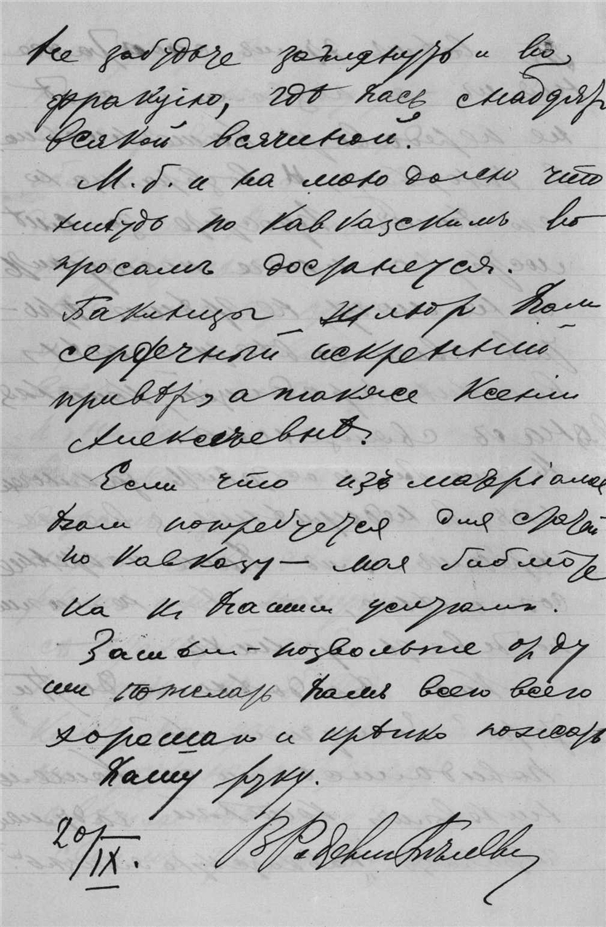 не забудьте заглянуть и во
фракцію, гдѣ Васъ снабдятъ
всякой всячиной.
М. б. и на мою долю что
нибудь по Кавказскимъ во
просамъ достанется.
шлютъ Вамъ
сердечный искренній
привѣтъ, а также Ксеніи
Алексѣевнѣ.
Если что изъ матеріаловъ
Вамъ потребуется для статей
по Кавказу — моя библіоте
ка къ Вашим услугамъ.
Засимъ — позвольте от ду
ши пожелать Вамъ всего всего
хорошаго и крѣпко пожать
Вашу руку.
20/IX.